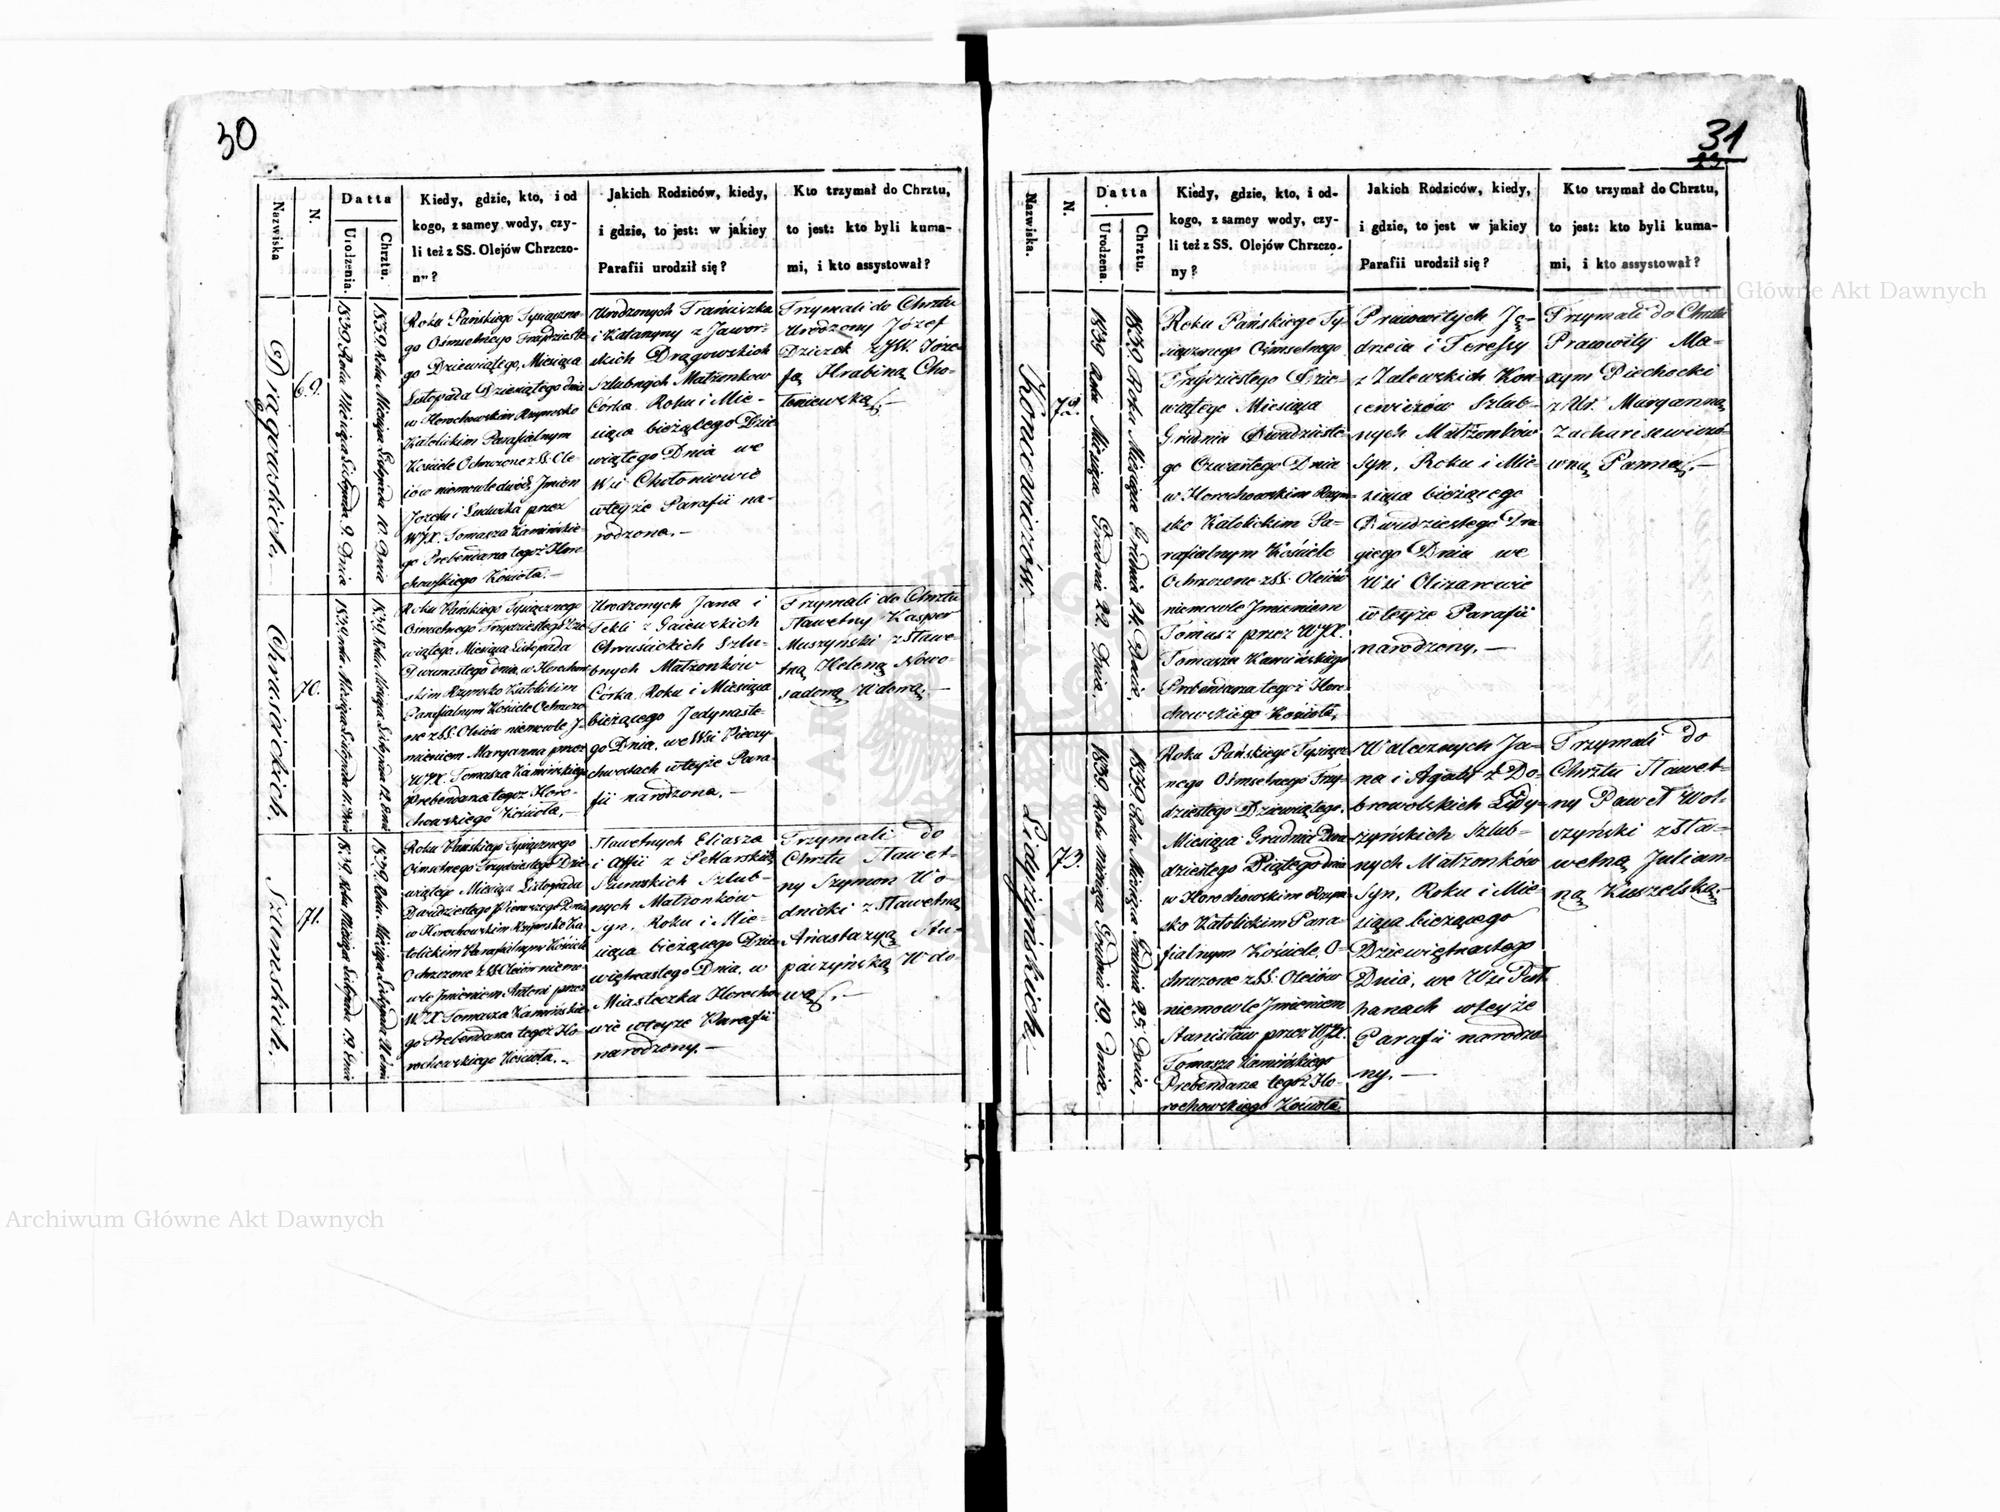 30
Nazwiska
N.
Datta
Urodzenia.
Chrztu.
Kiedy, gdzie, kto, i od
kogo, z samey wody, czy-
li też z SS. Olejów Chrzczo-
n"?
Jakich Rodziców, kiedy,
i gdzie, to jest: w jakiey
Parafii urodził się?
Kto trzymał do Chrztu,
to jest: kto byli kuma-
mi, i kto assystował?
Dragowskich.
69.
1839 Roku Miesiąca Listopada 9. Dnia
1839. Roku Miesiąca Listopada 10. Dnia
Roku Pańskiego Tysiączne-
go Ośmsetnego Trzydzieste-
go Dziewiątego, Miesiąca
Listopada Dziesiątego dnia
w Horochowskim Rzymsko
Katolickim Parafialnym
Kościele Ochrzczone z SS: Ole-
iow niemowle dwóch Jmion
Jozefa i Ludwika przez
WJX. Tomasza Kamińskie-
go Prebendarza tegoż Horo-
chowskiego Kościoła.—
Urodzonych Franciszka
i Katarzyny z Jawor-
skich Drągowskich
szlubnych Matzonkow
Córka. Roku i Mie-
siąca bieżącego Dzie-
wiątego Dnia we
Wsi Chołoniowie
wteyże Parafii na-
rodzona.—
Trzymali do Chrztu
Urodzony Józef
Dziczek z JW. Józe-
fą Hrabiną Cho-
łoniewską.—
Chrusickich.
70.
1839 Roku Miesiąca Listopada 11. Dnia
1839 Roku Miesiąca Listopada 12. Dnia
Roku Pańskiego Tysiącznego
Ośmsetnego Trzydziestego Dzie
wiątego. Miesiąca Listopada
Dwunastego dnia, w Horochow
skim Rzymsko Katolickim
Parafialnym Kościele Ochrzczo
ne z SS: Oleiów niemowle, J-
mieniem Maryanna przez
WJX. Tomasza Kamińskiego
Prebendarza tegoż Horo-
chowskiego Kościoła.—
Urodzonych Jana i
Tekli z Gaiewskich
Chrusickich Szlu-
bnych Małżonków
Córka. Roku i Miesiąca
bieżącego Jedynaste-
go Dnia, we Wsi Pieczy-
chwostach wteyże Para-
fii narodzona.—
Trzymali do Chrztu
Sławetny Kasper
Muszyński z Sławe-
tną Heleną Nowo-
sadową Wdową.—
Szumskich.
71.
1839 Roku Miesiąca Listopada 19. Dnia
1839. Roku Miesiąca Listopada 21 dnia
Roku Pańskiego Tysiącznego
Ośmsetnego Trzydziestego Dzie
wiątego Miesiąca Listopada
Dwudziestego Pierwszego Dnia
w Horochowskim Rzymsko Ka-
tolickim Parafialnym Kościele
Ochrzczone z SS Oleiów niemo-
wle Jmieniem Antoni przez
WJX Tomasza Kamińskie-
go Prebendarza tegoż Ho-
rochowskiego Kościoła.—
Sławetnych Eliasza
i z Petlarskich
Szumskich Szlub-
nych Małżonków
Syn, Roku i Mie-
siąca bieżącego Dzie-
więtnastego Dnia, w
Miasteczku Horocho-
wie wteyże Parafii
narodzony.—
Trzymali do
Chrztu Sławet-
ny Szymon Wo-
dnicki z Sławetną
Anastazyą Stu-
paczyńską Wdo-
wą.—
31
Nazwiska.
N.
Datta
Urodzena.
Chrztu.
Kiedy, gdzie, kto, i od-
kogo, z samey wody, czy-
li też z SS. Olejów Chrzczo-
ny?
Jakich Rodziców, kiedy,
i gdzie, to jest w jakiey
Parafii urodził się?
Kto trzymał do Chrztu,
to jest: kto byli kuma-
mi, i kto assystował?
Koncewiczów.
72.
1839 Roku Miesiąca Grudnia 22. Dnia
1839. Roku Miesiąca Grudnia 24. Dnia.
Roku Pańskiego Ty-
siącznego Ośmsetnego
Trzydziestego Dzie-
wiątego Miesiąca
Grudnia Dwudzieste-
go Czwartego Dnia
w Horochowskim Rzym-
sko Katolickim Pa-
rafialnym Kościele
Ochrzczone z SS. Oleiów
niemowle Jmieniem
Tomasz przez WJX.
Tomasza Kamińskiego
Prebendarza tegoż Horo-
chowskiego Kościoła.
Pracowitych Ję-
drzeia i Teressy
z Zalewskich Kon-
cewiczów Szlub-
nych Małżonków
Syn, Roku i Mie-
siąca bieżącego
Dwudziestego Dru-
giego Dnia we
Wsi Ołizarowie
wteyże Parafii
narodzony.—
Trzymali do Chrztu
Prawowity Ma-
xym Piechocki
z Ur. Maryanną
Zacharesewiczó-
wną Panną.—
Lidyżyńskich.
73.
1839. Roku Miesiąca Grudnia 19. Dnia.
1839 Roku Miesiąca Grudnia 25. Dnia.
Roku Pańskiego Tysiącz-
nego Ośmsetnego Trzy-
dziestego Dziewiątego.
Miesiąca Grudnia Dwu-
dziestego Piątego dnia
w Horochowskim Rzym-
sko Katolickim Para-
fialnym Kościele, O-
chrzczone z SS: Oleiów
niemowle Jmieniem
Stanisław przez WJX.
Tomasza Kamińskiego
Prebendarza tegoż Ho-
rochowskiego Kościoła.
Walecznych Ja-
na i Agaty z Do-
browolskich Lidy-
żyńskich Szlub-
nych Matzonków
Syn, Roku i Mie-
siąca bieżącego
Dziewiętnastego
Dnia, we Wsi Pust
hanach wteyże
Parafii narodzo-
ny.—
Trzymali do
Chrztu Sławet-
ny Paweł Wol-
czyński z Sła-
wetną Julian-
ną Kuszelską.
Archiwum Główne Akt Dawnych
Archiwum Główne Akt Dawnych